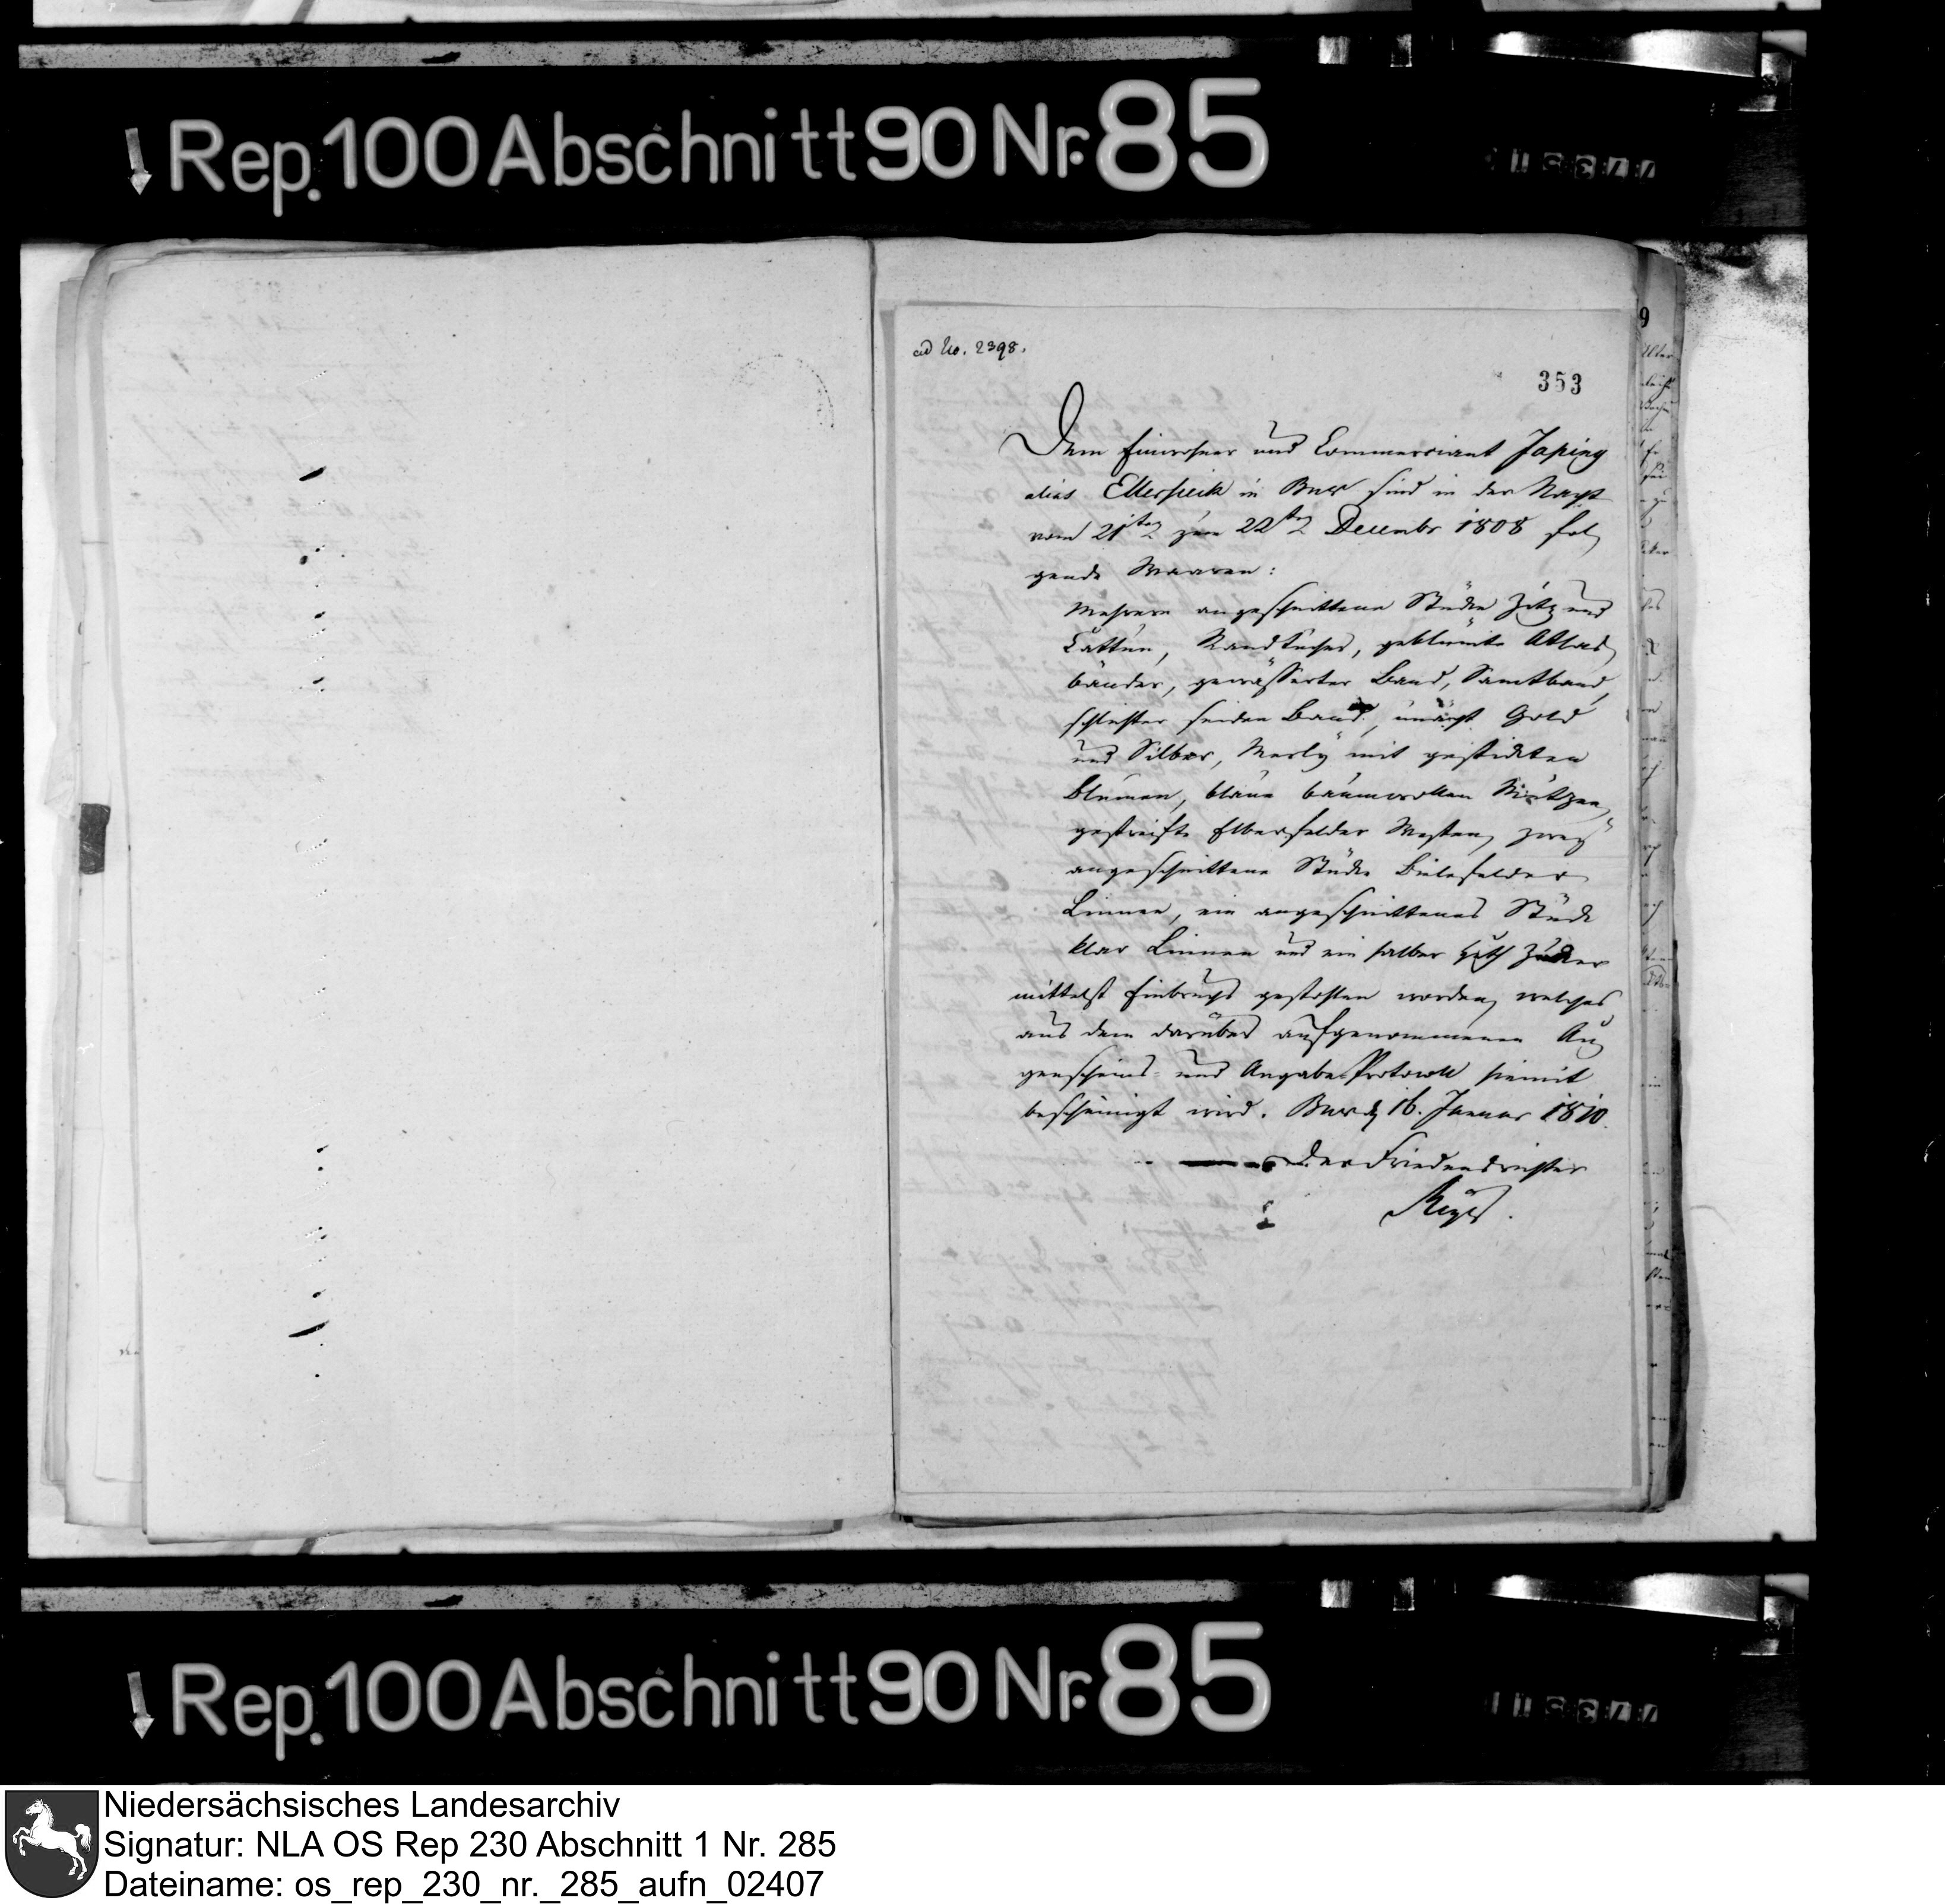 ↓ Rep. 100 Abschnitt 90 Nr. 85
ad No. 2398.
353
Dem Einwohner und Commerciant Japing
alias Ellersieck in Buer sind in der Nacht
vom 21ten zum 22ten Decembr 1808 fol
gende Waaren:
Mehrere angeschnittene Stücke Zitz und
Cattun, Randtücher, geblümte Atlas
bänder, gewässerter Band, Samtband,
schlichter seiden Band, unächt Gold
und Silber, Marly mit gestickten
Blumen, blaue baumwollen Mützen,
gestreifte Elberfelder Westen, zwey
angeschnittene Stücke Bielefelder
Linnen, ein angeschnittenes Stück
klar Linnen und ein halber Huth Zucker
mittelst Einbruchs gestohlen worden, welches
aus dem darüber aufgenommenen Au
genscheins- und Angabe Protocoll hiemit
bescheinigt wird. Buer d 16. Januar 1810.
Der Friedensrichter
↓ Rep. 100 Abschnitt 90 Nr. 85
Niedersächsisches Landesarchiv
Signatur: NLA OS Rep 230 Abschnitt 1 Nr. 285
Dateiname: os_rep_230_nr._285_aufn_02407